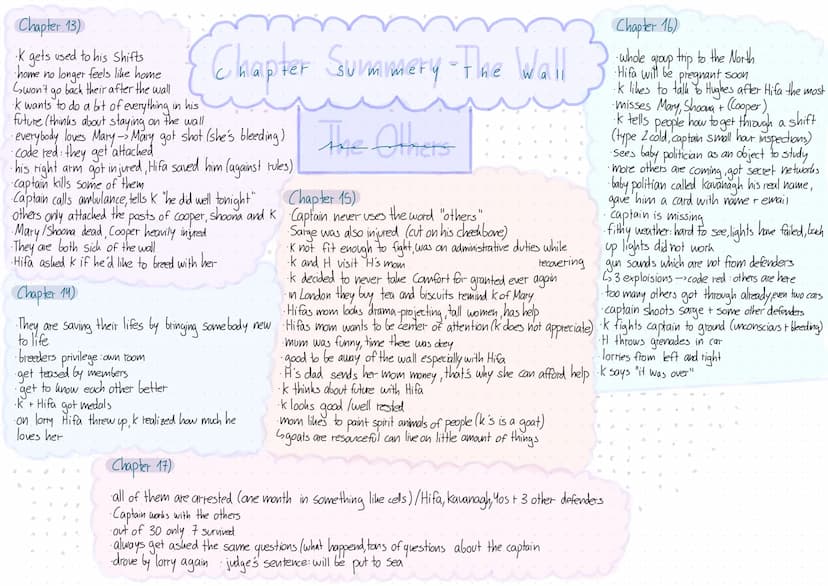 Chapter Summery - The Wall
The Others
Chapter 13)
· K gets used to his Shifts
· home no longer feels like home
↳ won't go back their after the wall
· K wants to do a bit of everything in his
future (thinks about staying on the wall
· everybody loves Mary → Mary got shot (she's bleeding)
· code red: they get attached
· his right arm got injured, Hifa saved him (against rules)
· captain kills some of them
· Captain calls ambulance, tells K "he did well tonight"
· others only attacked the posts of Cooper, Shoona and K
· Mary/Shoona dead, Cooper heavily injured
· They are both sick of the wall
· Hifa asked K if he'd like to breed with her
Chapter 14)
· They are saving their lifes by bringing somebody new
to life
· breeders privilege: own room
· get teased by members
· get to know each other better
· K + Hifa got medals
· on lorry Hifa threw up, K realized how much he
loves her
Chapter 15)
· Captain never uses the word "others"
· Sarge was also injured (cut on his cheekbone)
· K not fit enough to fight, was on administrative duties while
recovering
· K and H visit H's mom
· K decided to never take Comfort for granted ever again
· in London they buy tea and biscuits remind K of Mary
· Hifas mom looks drama-projecting, tall women, has help
· Hifas mom wants to be center of attention (K does not appreciate)
· mum was funny, time there was okay
· good to be away of the wall especially with Hifa
· H's dad sends her mom money, that's why she can afford help
· K thinks about future with Hifa
· K looks good / well rested
· mom likes to paint spirit animals of people (K's is a goat)
↳ goats are resourceful can live on little amount of things
Chapter 16)
· whole group trip to the North
· Hifa will be pregnant soon
· K likes to talk to Hughes after Hifa the most
· misses Mary, Shoona + (Cooper)
· K tells people how to get through a shift
(type 2 cold, captain small hour inspections)
· sees baby politician as an object to study
· more others are coming, got secret networks
· baby politian called kavanagh his real name,
gave him a card with name + email
· captain is missing
· filthy weather: hard to see, lights have failed, back
up lights did not work
· gun sounds which are not from defenders
↳ 3 exploisions → code red: others are here
· too many others got through already, even two cars
· captain shoots sarge + some other defenders
· K fights captain to ground (unconscius + bleeding)
· H throws grenades in car
· lorries from left and right
· K says "it was over"
Chapter 17)
· all of them are arrested (one month in something like cells) / Hifa, Kavanagh, Yos + 3 other defenders
· Captain works with the others
· out of 30 only 7 survived
· always get asked the same questions (what happend, tons of questions about the captain
· drove by lorry again · judge's sentence: will be put to sea